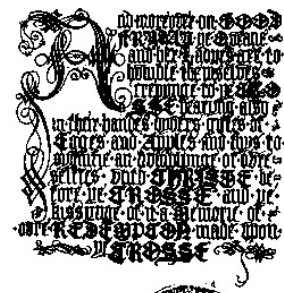 And moreover on GOOD
FRYDAY ye Queane
and her Ladyes are to
humble themselves &
creepinge to ye CRO
SSE bearing also
in their handes divers giftes of
Egges and Apples and thus to
signifie an offeringe of
selves with CHRISTE be
fore ye CROSSE and ye
kissynge of it a Memorie of
oure REDEMPTION made upon
ye CROSSE